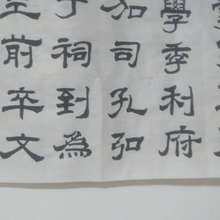 學季利府
加司孔弘
于祠到為
前卒文